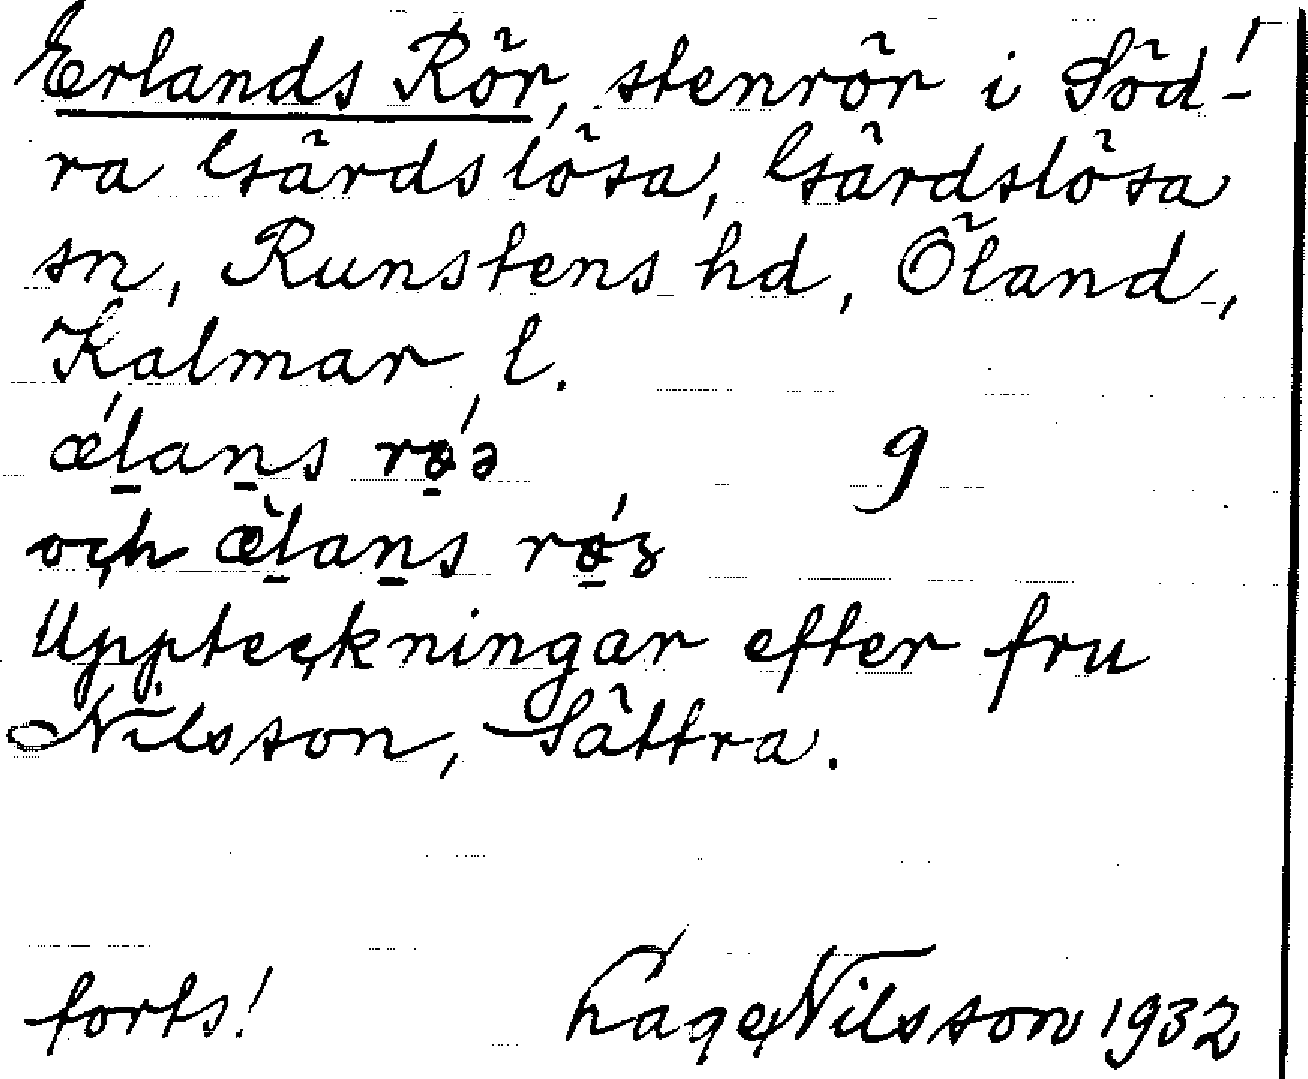 Erlands Rör, stenrör i Söd-
ra Gärdslösa, Gärdslösa
sn, Runstens hd, Öland,
Kalmar l.
ǽl̠an̠s rǿ̠ə 9
och æ̀l̠an̠s rǿ̠z
Uppteckningar efter fru
Nilsson, Sättra.
forts! Lage Nilsson 1932